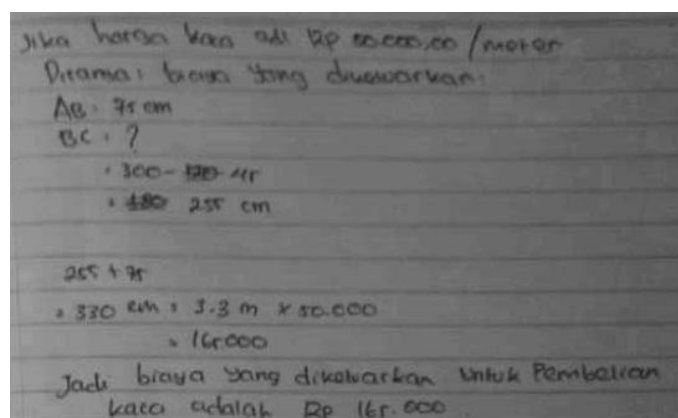 Jika harga kaca adl Rp 50.000,00 /meter
Ditanya: biaya yang dikeluarkan:
AB = 75 cm
BC = ?
= 300 - 45
= 255 cm
255 + 75
= 330 cm = 3.3 m x 50.000
= 165000
Jadi biaya yang dikeluarkan untuk Pembelian
kaca adalah Rp 165.000